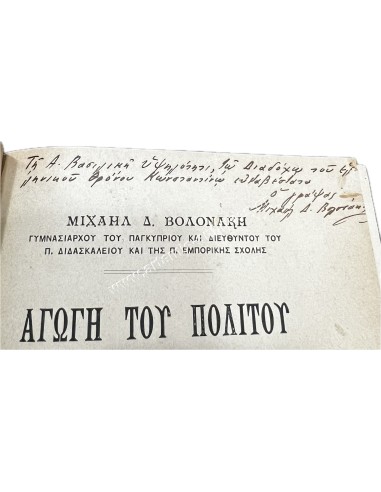 Τῇ Α. Βασιλικῇ Ὑψηλότητι, τῷ Διαδόχῳ τοῦ Ἑλ
ληνικοῦ Θρόνου Κωνσταντίνῳ εὐλαβέστατα
Ὁ γράψας
Μιχαὴλ Δ. Βολονάκης
ΜΙΧΑΗΛ Δ. ΒΟΛΟΝΑΚΗ
ΓΥΜΝΑΣΙΑΡΧΟΥ ΤΟΥ ΠΑΓΚΥΠΡΙΟΥ ΚΑΙ ΔΙΕΥΘΥΝΤΟΥ ΤΟΥ
Π. ΔΙΔΑΣΚΑΛΕΙΟΥ ΚΑΙ ΤΗΣ Π. ΕΜΠΟΡΙΚΗΣ ΣΧΟΛΗΣ
ΑΓΩΓΗ ΤΟΥ ΠΟΛΙΤΟΥ